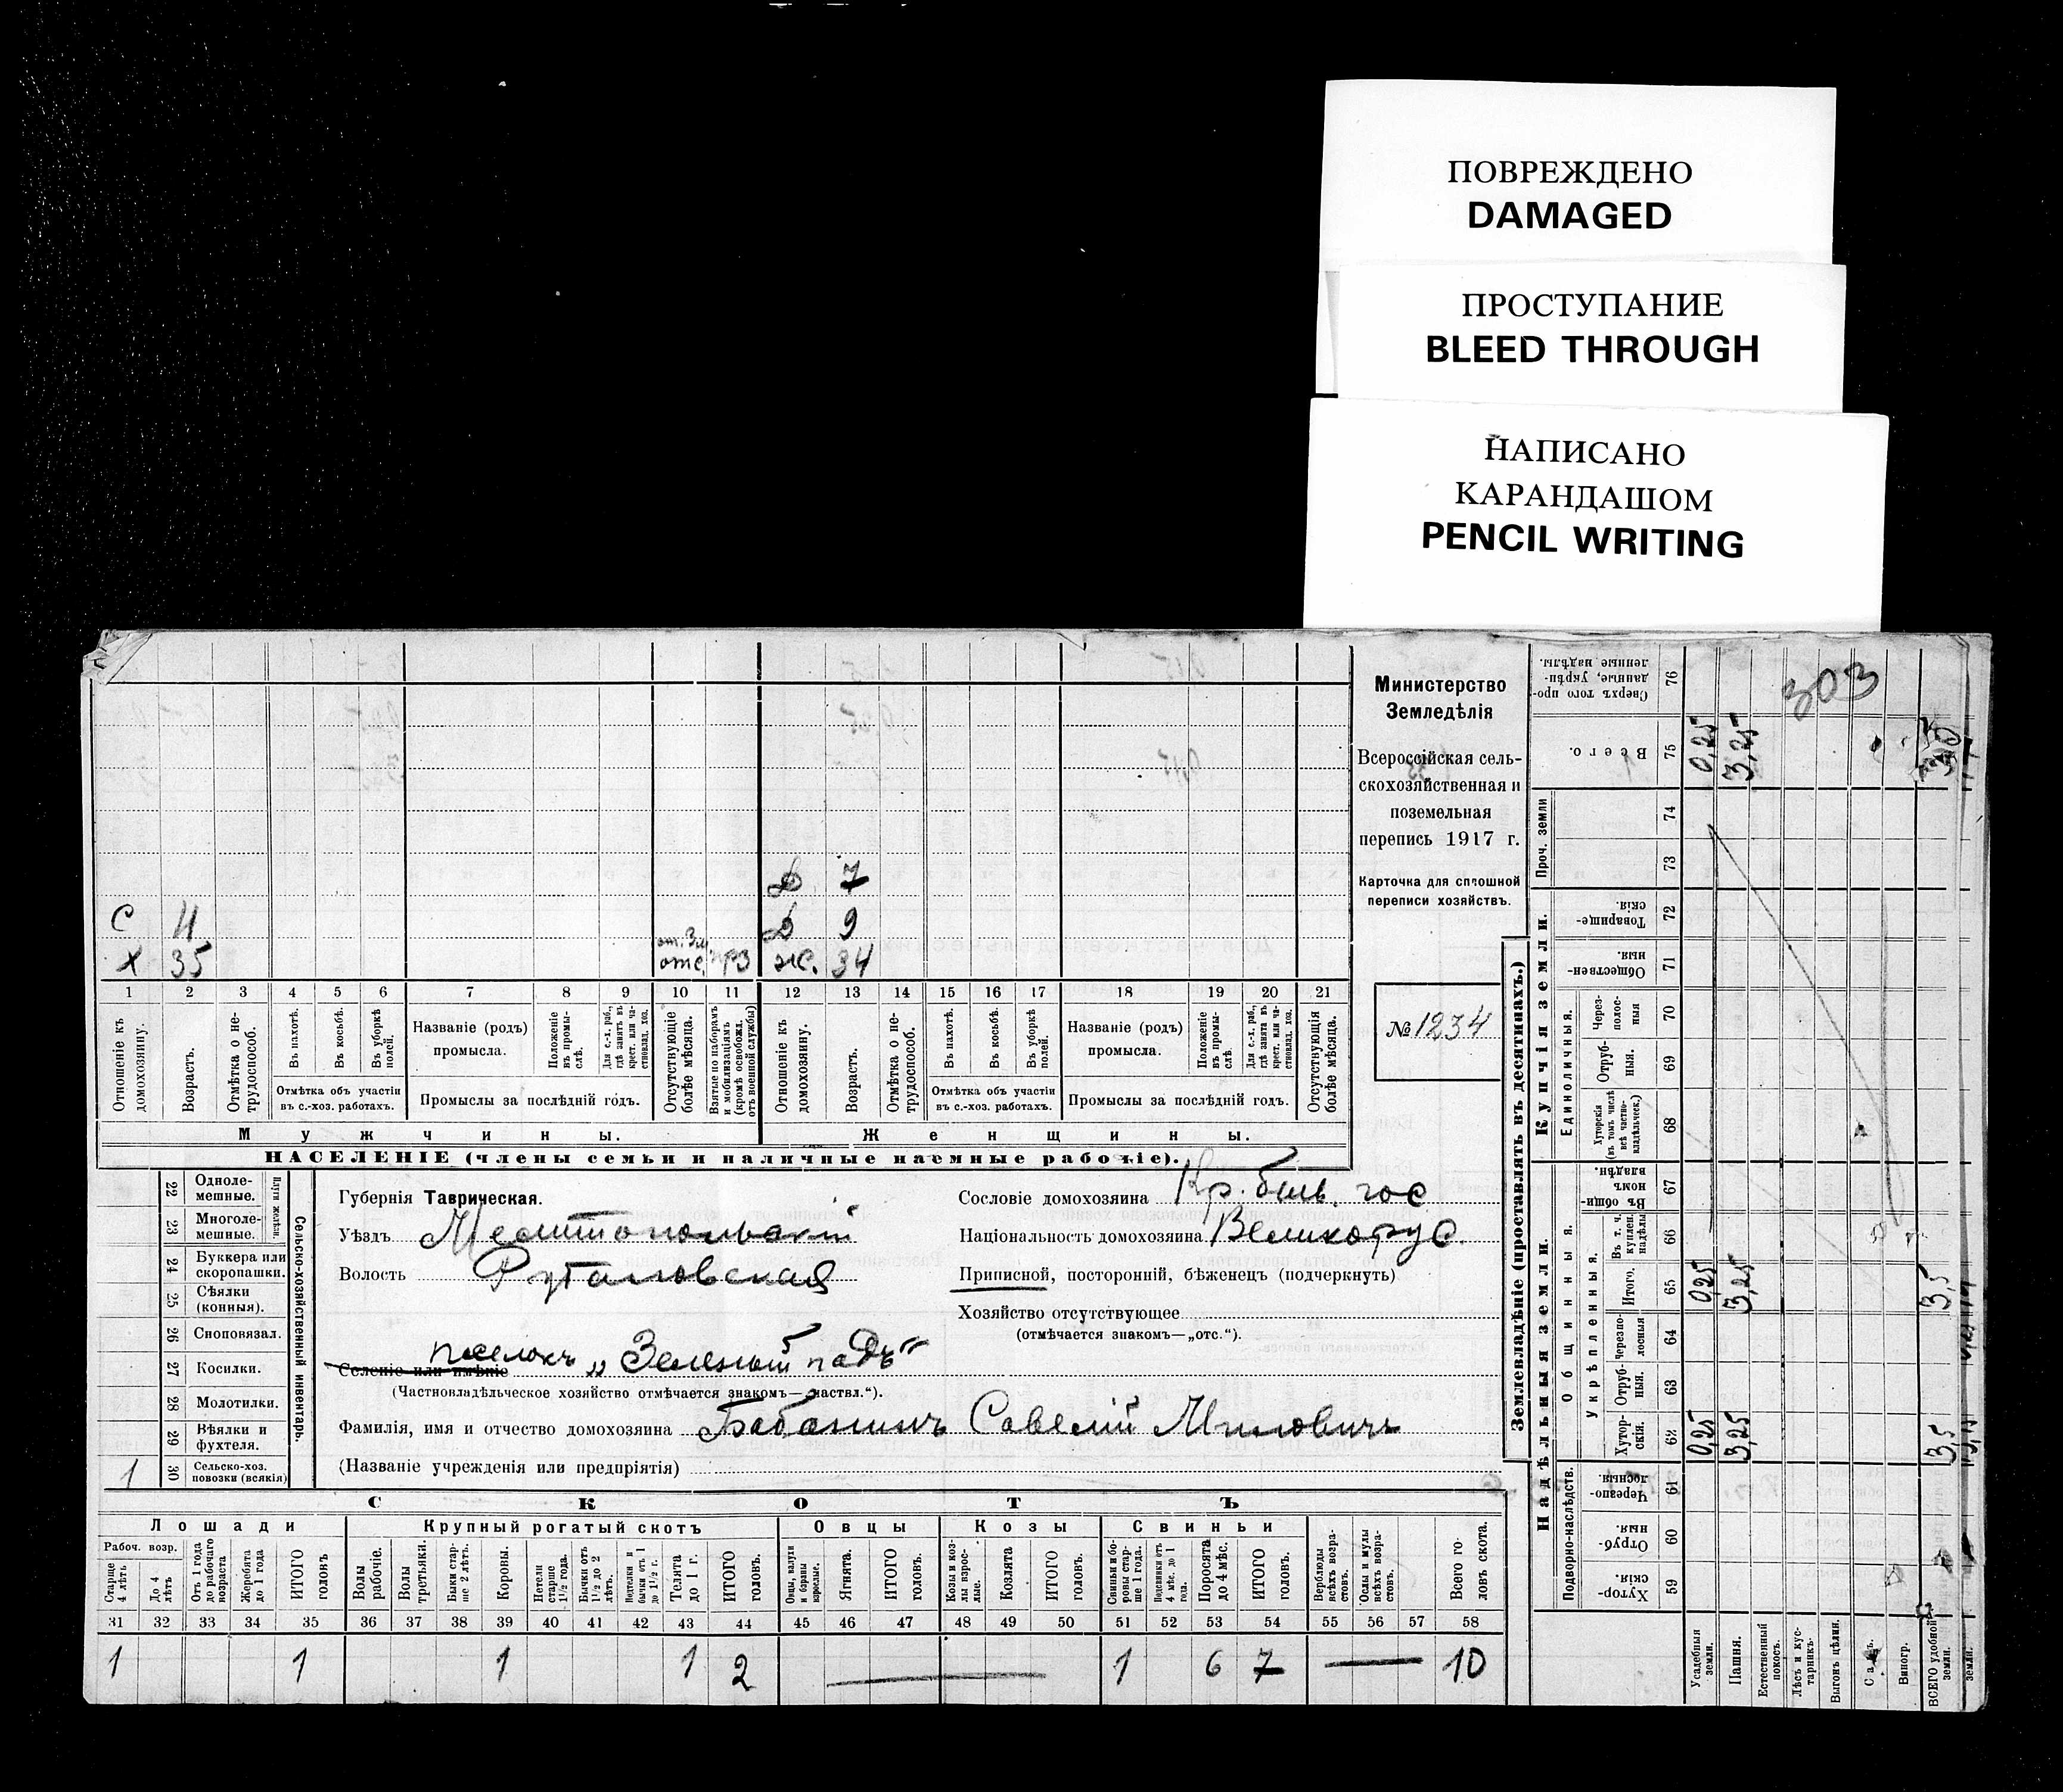 ПОВРЕЖДЕНО
DAMAGED
ПРОСТУПАНИЕ
BLEED THROUGH
НАПИСАНО
КАРАНДАШОМ
PENCIL WRITING
303
Министерство
Земледѣлія
Всероссійская сель-
скохозяйственная и
поземельная
перепись 1917 г.
Карточка для сплошной
переписи хозяйствъ.
№ 1234
Д 7
С 11 Д 9
Х 35 отс. ж. 34
1 2 3 4 5 6 7 8 9 10 11 12 13 14 15 16 17 18 19 20 21
Отношеніе къ домохозяину.
Возрастъ.
Отмѣтка о не-трудоспособ.
Въ пахотѣ.
Въ косьбѣ.
Въ уборкѣ полей.
Отмѣтка объ участіи
въ с.-хоз. работахъ.
Названіе (родъ)
промысла.
Положеніе въ промы-слѣ.
Для с.-х. раб., гдѣ занятъ въ крест. или ча-стновлад. хоз.
Промыслы за послѣдній годъ.
Отсутствующіе болѣе мѣсяца.
Взятые по наборамъ и мобилизаціямъ (кромѣ освобожд. отъ военной службы)
Отношеніе къ домохозяину.
Возрастъ.
Отмѣтка о не-трудоспособ.
Въ пахотѣ.
Въ косьбѣ.
Въ уборкѣ полей.
Отмѣтка объ участіи
въ с.-хоз. работахъ.
Названіе (родъ)
промысла.
Положеніе въ промы-слѣ.
Для с.-х. раб., гдѣ занята въ крест. или ча-стновлад. хоз.
Промыслы за послѣдній годъ.
Отсутствующія болѣе мѣсяца.
Мужчины.
Женщины.
НАСЕЛЕНІЕ (члены семьи и наличные наемные рабочіе).
Сельско-хозяйственный инвентарь.
Плуги желѣзн.
22 Одноле-мешные.
23 Многоле-мешные.
24 Буккера или скоропашки.
25 Сѣялки (конныя).
26 Сноповязал.
27 Косилки.
28 Молотилки.
29 Вѣялки и фухтеля.
1 30 Сельско-хоз. повозки (всякія)
Губернія Таврическая.
Уѣздъ Мелитопольскій
Волость
поселокъ „Зеленый падъ“
Селеніе или имѣніе
(Частновладѣльческое хозяйство отмѣчается знакомъ—„частвл.“).
Фамилія, имя и отчество домохозяина Бабанинъ Савелій
(Названіе учрежденія или предпріятія)
Сословіе домохозяина Кр. быв. гос
Національность домохозяина Великорус.
Приписной, посторонній, бѣженецъ (подчеркнуть)
Хозяйство отсутствующее
(отмѣчается знакомъ—„отс.“).
СКОТЪ
Лошади
Крупный рогатый скотъ
Овцы
Козы
Свиньи
Рабоч. возр.
Старше 4 лѣтъ
До 4 лѣтъ
Отъ 1 года до рабочаго возраста
Жеребята до 1 года
ИТОГО головъ
Волы рабочіе.
Волы третьяки.
Быки стар-ше 2 лѣтъ.
Коровы.
Нетели старше 1 1/2 года.
Бычки отъ 1 1/2 до 2 лѣтъ.
Подтелки и бычки отъ 1 до 1 1/2 г.
Телята до 1 г.
ИТОГО головъ.
Овцы, валухи и бараны взрослые.
Ягнята.
ИТОГО головъ.
Козы и коз-лы взрос-лые.
Козлята
ИТОГО головъ.
Свиньи и бо-ровы стар-ше 1 года.
Подсвинки отъ 4 мѣс. до 1 года.
Поросята до 4 мѣс.
ИТОГО головъ.
Верблюды всѣхъ возра-стовъ.
Ослы и мулы всѣхъ возра-стовъ.
Всего го-ловъ скота.
31 32 33 34 35 36 37 38 39 40 41 42 43 44 45 46 47 48 49 50 51 52 53 54 55 56 57 58
1 1 1 1 2 1 6 7 10
Землевладѣніе (проставлять въ десятинахъ.)
Надѣльныя земли.
Купчія земли.
Проч. земли
Подворно-наслѣдств.
Общинныя.
Укрѣпленныя.
Единоличныя.
59 Хутор-скія.
60 Отруб-ныя
61 Черезпо-лосныя
62 Хутор-скія. 0,25 3,25 3,5
63 Отруб-ныя.
64 Черезпо-лосныя
65 Итого. 0,25 3,25 3,5
66 Въ т. ч. куплен. надѣлы
67 Въ общи-номъ владѣн.
68 Хуторскія (въ томъ числѣ всѣ частно-владѣльческ.)
69 Отруб-ныя.
70 Через-полос-ныя
71 Обществен-ныя.
72 Товарище-скія.
73
74
75 Всего. 0,25 3,25
76 Сверхъ того про-данные, укрѣп-ленные надѣлы.
Усадебныя земли.
Пашня.
Естественный покосъ.
Лѣсъ и кус-тарникъ.
Выгонъ цѣлин.
Садъ.
Виногр.
ВСЕГО удобной земли.